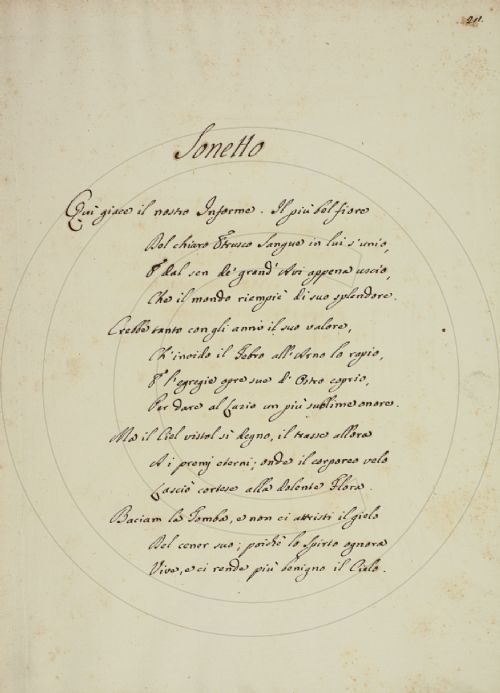 201.
Sonetto
Quì giace il nostro Informe. Il più bel fiore
Del chiaro Etrusco Sangue in lui s'unio,
E dal sen de' grand' Avi appena uscio,
Che il mondo riempiè di suo splendore.
Crebbe tanto con gli anni il suo valore,
Ch'invido il Tebro all'Arno lo rapio,
E l'egregie opre sue d'Ostro coprio,
Per dare al Lazio un più sublime onore.
Ma il Ciel vistol sì degno, il trasse allora
A i premj eterni; onde il corporeo velo
Lasciò cortese alla dolente Flora.
Baciam la Tomba, e non ci attristi il gielo
Del cener suo; poichè lo Spirto ognora
Vive, e ci rende più benigno il Cielo.